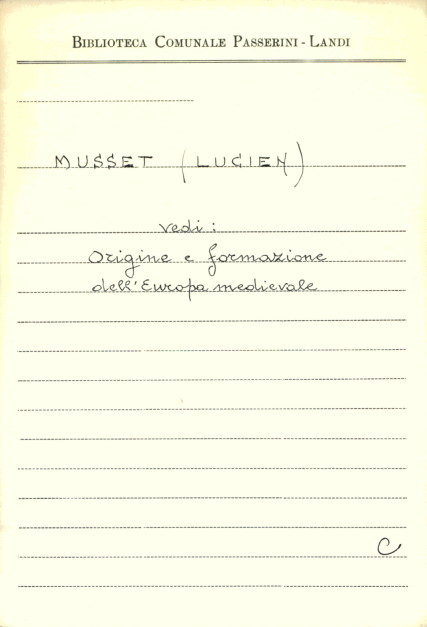 BIBLIOTECA COMUNALE PASSERINI - LANDI
MUSSET (LUCIEN)
vedi:
Origine e formazione
dell'Europa medievale
C